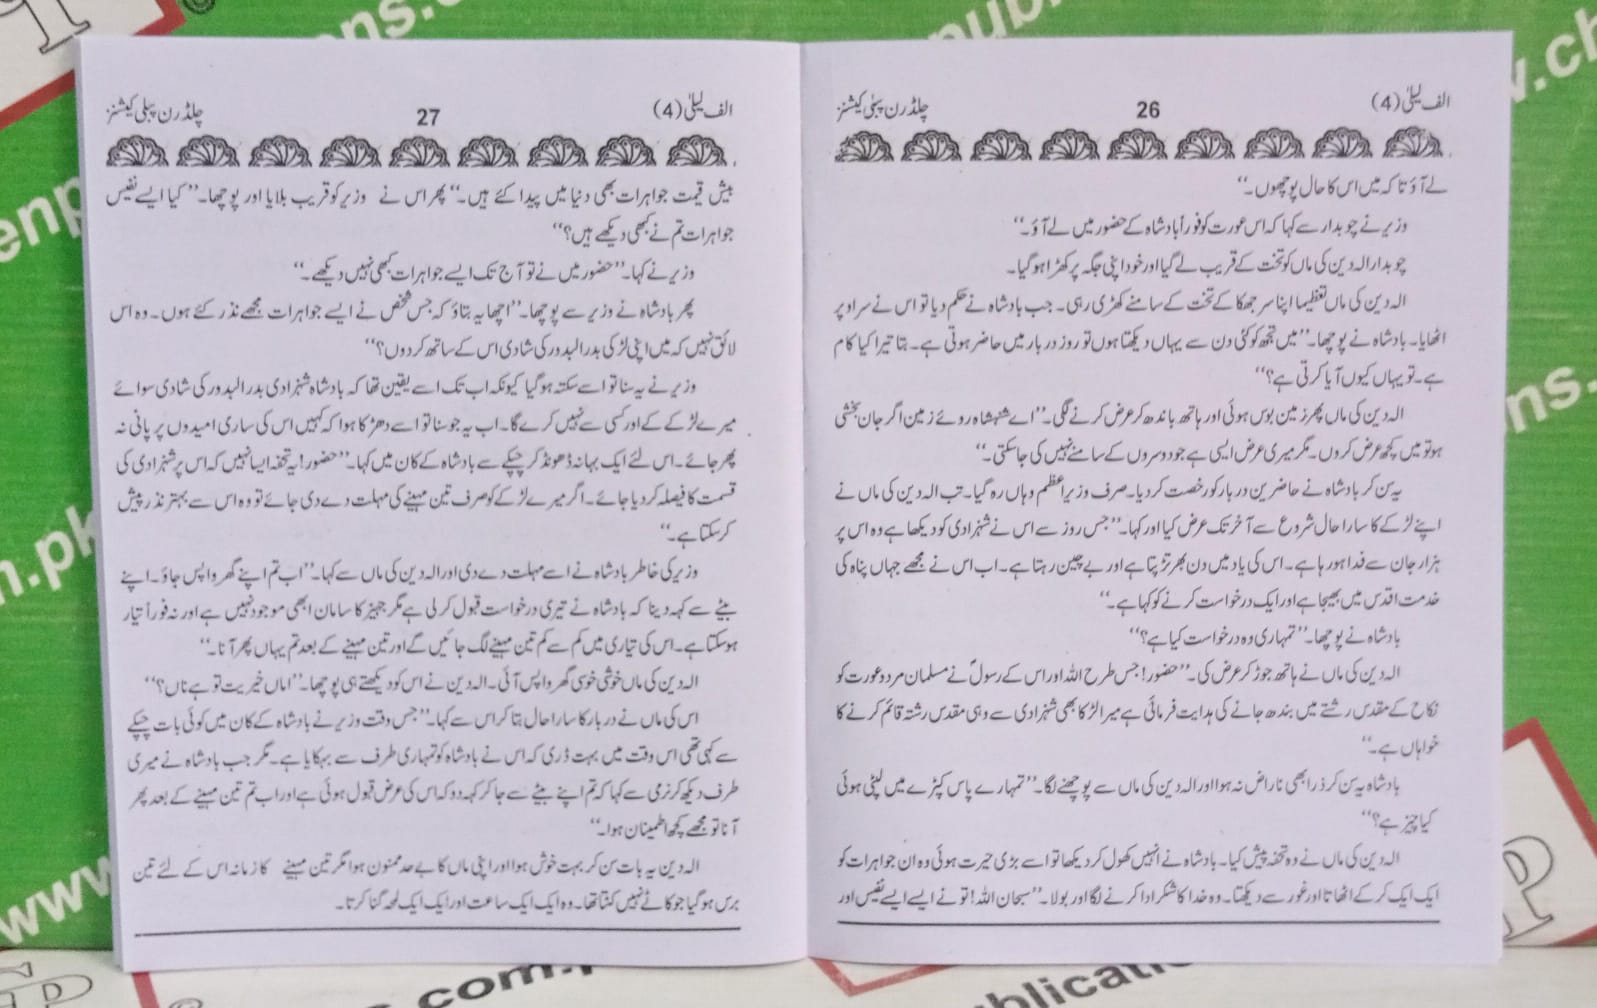 الف لیلیٰ (4)
26
چلڈرن پبلی کیشنز
لے آؤ تا کہ میں اس کا حال پوچھوں۔‘‘
وزیر نے چوبدار سے کہا کہ اس عورت کو فوراً بادشاہ کے حضور میں لے آؤ۔‘‘
چوبدار الہ دین کی ماں کو تخت کے قریب لے گیا اور خود اپنی جگہ پر کھڑا ہو گیا۔
الہ دین کی ماں تعظیما اپنا سر جھکا کے تخت کے سامنے کھڑی رہی۔ جب بادشاہ نے حکم دیا تو اس نے سر اوپر
اٹھایا۔ بادشاہ نے پوچھا۔ ’’میں تجھ کو کئی دن سے یہاں دیکھتا ہوں تو روز دربار میں حاضر ہوتی ہے۔ بتا تیرا کیا کام
ہے۔ تو یہاں کیوں آیا کرتی ہے؟‘‘
الہ دین کی ماں پھر زمین بوس ہوئی اور ہاتھ باندھ کر عرض کرنے لگی۔ ’’اے شہنشاہ روئے زمین اگر جان بخشی
ہو تو میں کچھ عرض کروں۔ مگر میری عرض ایسی ہے جو دوسروں کے سامنے نہیں کی جا سکتی۔‘‘
یہ سن کر بادشاہ نے حاضرین دربار کو رخصت کر دیا۔ صرف وزیر اعظم وہاں رہ گیا۔ تب الہ دین کی ماں نے
اپنے لڑکے کا سارا حال شروع سے آخر تک عرض کیا اور کہا۔ ’’جس روز سے اس نے شہزادی کو دیکھا ہے وہ اس پر
ہزار جان سے فدا ہو رہا ہے۔ اس کی یاد میں دن بھر تڑپتا ہے اور بے چین رہتا ہے۔ اب اس نے مجھے جہاں پناہ کی
خدمت اقدس میں بھیجا ہے اور ایک درخواست کرنے کو کہا ہے۔‘‘
بادشاہ نے پوچھا۔ ’’تمہاری وہ درخواست کیا ہے؟‘‘
الہ دین کی ماں نے ہاتھ جوڑ کر عرض کی۔ ’’حضور! جس طرح اللہ اور اس کے رسولؐ نے مسلمان مرد و عورت کو
نکاح کے مقدس رشتے میں بندھ جانے کی ہدایت فرمائی ہے میرا لڑکا بھی شہزادی سے وہی مقدس رشتہ قائم کرنے کا
خواہاں ہے۔‘‘
بادشاہ یہ سن کر ذرا بھی ناراض نہ ہوا اور الہ دین کی ماں سے پوچھنے لگا۔ ’’تمہارے پاس کپڑے میں لپٹی ہوئی
کیا چیز ہے؟‘‘
الہ دین کی ماں نے وہ تحفہ پیش کیا۔ بادشاہ نے انہیں کھول کر دیکھا تو اسے بڑی حیرت ہوئی وہ ان جواہرات کو
ایک ایک کر کے اٹھاتا اور غور سے دیکھتا۔ وہ خدا کا شکر ادا کرنے لگا اور بولا۔ ’’سبحان اللہ! تو نے ایسے ایسے نفیس اور
الف لیلیٰ (4)
27
چلڈرن پبلی کیشنز
بیش قیمت جواہرات بھی دنیا میں پیدا کئے ہیں۔‘‘ پھر اس نے وزیر کو قریب بلایا اور پوچھا۔ ’’کیا ایسے نفیس
جواہرات تم نے کبھی دیکھے ہیں؟‘‘
وزیر نے کہا۔ ’’حضور میں نے تو آج تک ایسے جواہرات کبھی نہیں دیکھے۔‘‘
پھر بادشاہ نے وزیر سے پوچھا۔ ’’اچھا یہ بتاؤ کہ جس شخص نے ایسے جواہرات مجھے نذر کئے ہوں۔ وہ اس
لائق نہیں کہ میں اپنی لڑکی بدر البدور کی شادی اس کے ساتھ کر دوں؟‘‘
وزیر نے یہ سنا تو اسے سکتہ ہو گیا کیونکہ اب تک اسے یقین تھا کہ بادشاہ شہزادی بدر البدور کی شادی سوائے
میرے لڑکے کے اور کسی سے نہیں کرے گا۔ اب یہ جو سنا تو اسے دھڑکا ہوا کہ کہیں اس کی ساری امیدوں پر پانی نہ
پھر جائے۔ اس لئے ایک بہانہ ڈھونڈ کر چپکے سے بادشاہ کے کان میں کہا۔ ’’حضور! یہ تحفہ ایسا نہیں کہ اس پر شہزادی کی
قسمت کا فیصلہ کر دیا جائے۔ اگر میرے لڑکے کو صرف تین مہینے کی مہلت دے دی جائے تو وہ اس سے بہتر نذر پیش
کر سکتا ہے۔‘‘
وزیر کی خاطر بادشاہ نے اسے مہلت دے دی اور الہ دین کی ماں سے کہا۔ ’’اب تم اپنے گھر واپس جاؤ۔ اپنے
بیٹے سے کہہ دینا کہ بادشاہ نے تیری درخواست قبول کر لی ہے مگر جہیز کا سامان ابھی موجود نہیں ہے اور نہ فوراً تیار
ہو سکتا ہے۔ اس کی تیاری میں کم سے کم تین مہینے لگ جائیں گے اور تین مہینے کے بعد تم یہاں پھر آنا۔‘‘
الہ دین کی ماں خوشی خوشی گھر واپس آئی۔ الہ دین نے اس کو دیکھتے ہی پوچھا۔ ’’اماں خیریت تو ہے ناں؟‘‘
اس کی ماں نے دربار کا سارا حال بتا کر اس سے کہا۔ ’’جس وقت وزیر نے بادشاہ کے کان میں کوئی بات چپکے
سے کہی تھی اس وقت میں بہت ڈری کہ اس نے بادشاہ کو تمہاری طرف سے بہکایا ہے۔ مگر جب بادشاہ نے میری
طرف دیکھ کر نرمی سے کہا کہ تم اپنے بیٹے سے جا کر کہہ دو کہ اس کی عرض قبول ہوئی ہے اور اب تم تین مہینے کے بعد پھر
آنا تو مجھے کچھ اطمینان ہوا۔‘‘
الہ دین یہ بات سن کر بہت خوش ہوا اور اپنی ماں کا بے حد ممنون ہوا مگر تین مہینے کا زمانہ اس کے لئے تین
برس ہو گیا جو کاٹے نہیں کٹتا تھا۔ وہ ایک ایک ساعت اور ایک ایک لمحہ گنا کرتا۔